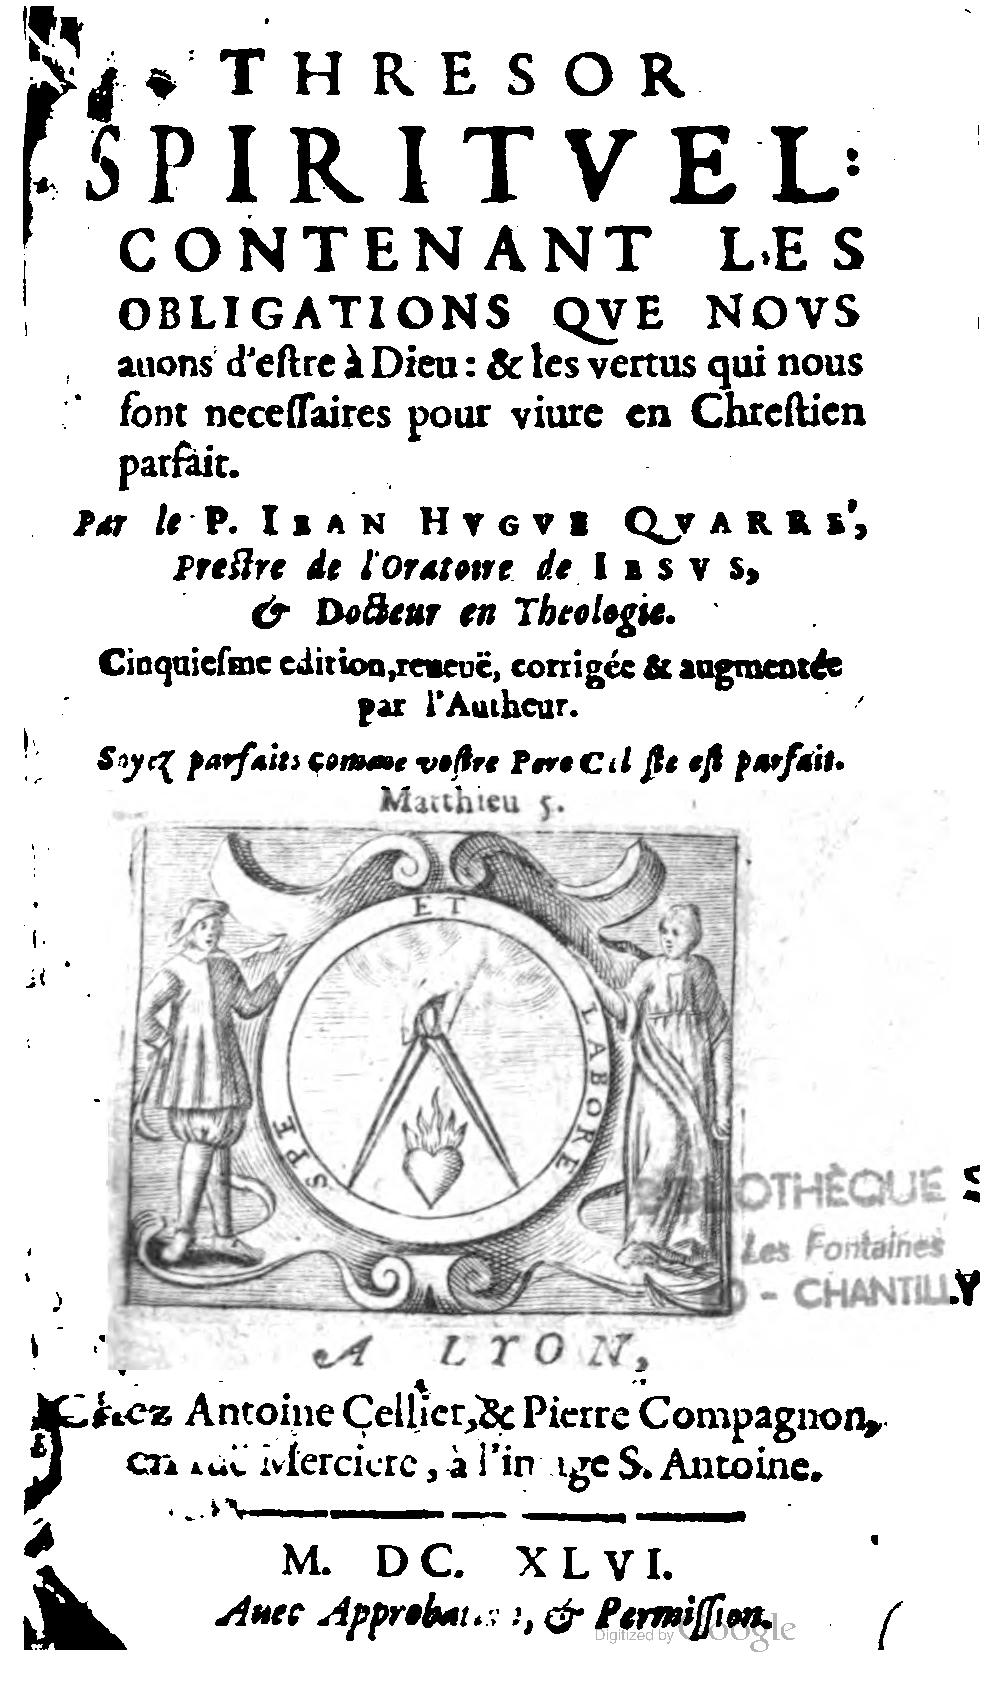 THRESOR
SPIRITVEL:
CONTENANT LES
OBLIGATIONS QVE NOVS
auons d'eſtre à Dieu: & les vertus qui nous
ſont neceſſaires pour viure en Chreſtien
parfait.
Par le P. IEAN HVGVE QVARRE',
Preſtre de l'Oratoire de IESVS,
& Docteur en Theologie.
Cinquieſme edition, reueuë, corrigée & augmentée
par l'Autheur.
Soyez parfaits comme voſtre Pere Cel ſte eſt parfait.
Matthieu 5.
SPE ET LABORE
BIBLIOTHÈQUE
Les Fontaines
0 - CHANTILLY
A LYON,
Chez Antoine Cellier, & Pierre Compagnon,
en ruë Merciere, à l'image S. Antoine.
M. DC. XLVI.
Auec Approbation, & Permiſſion.
Digitized by Google